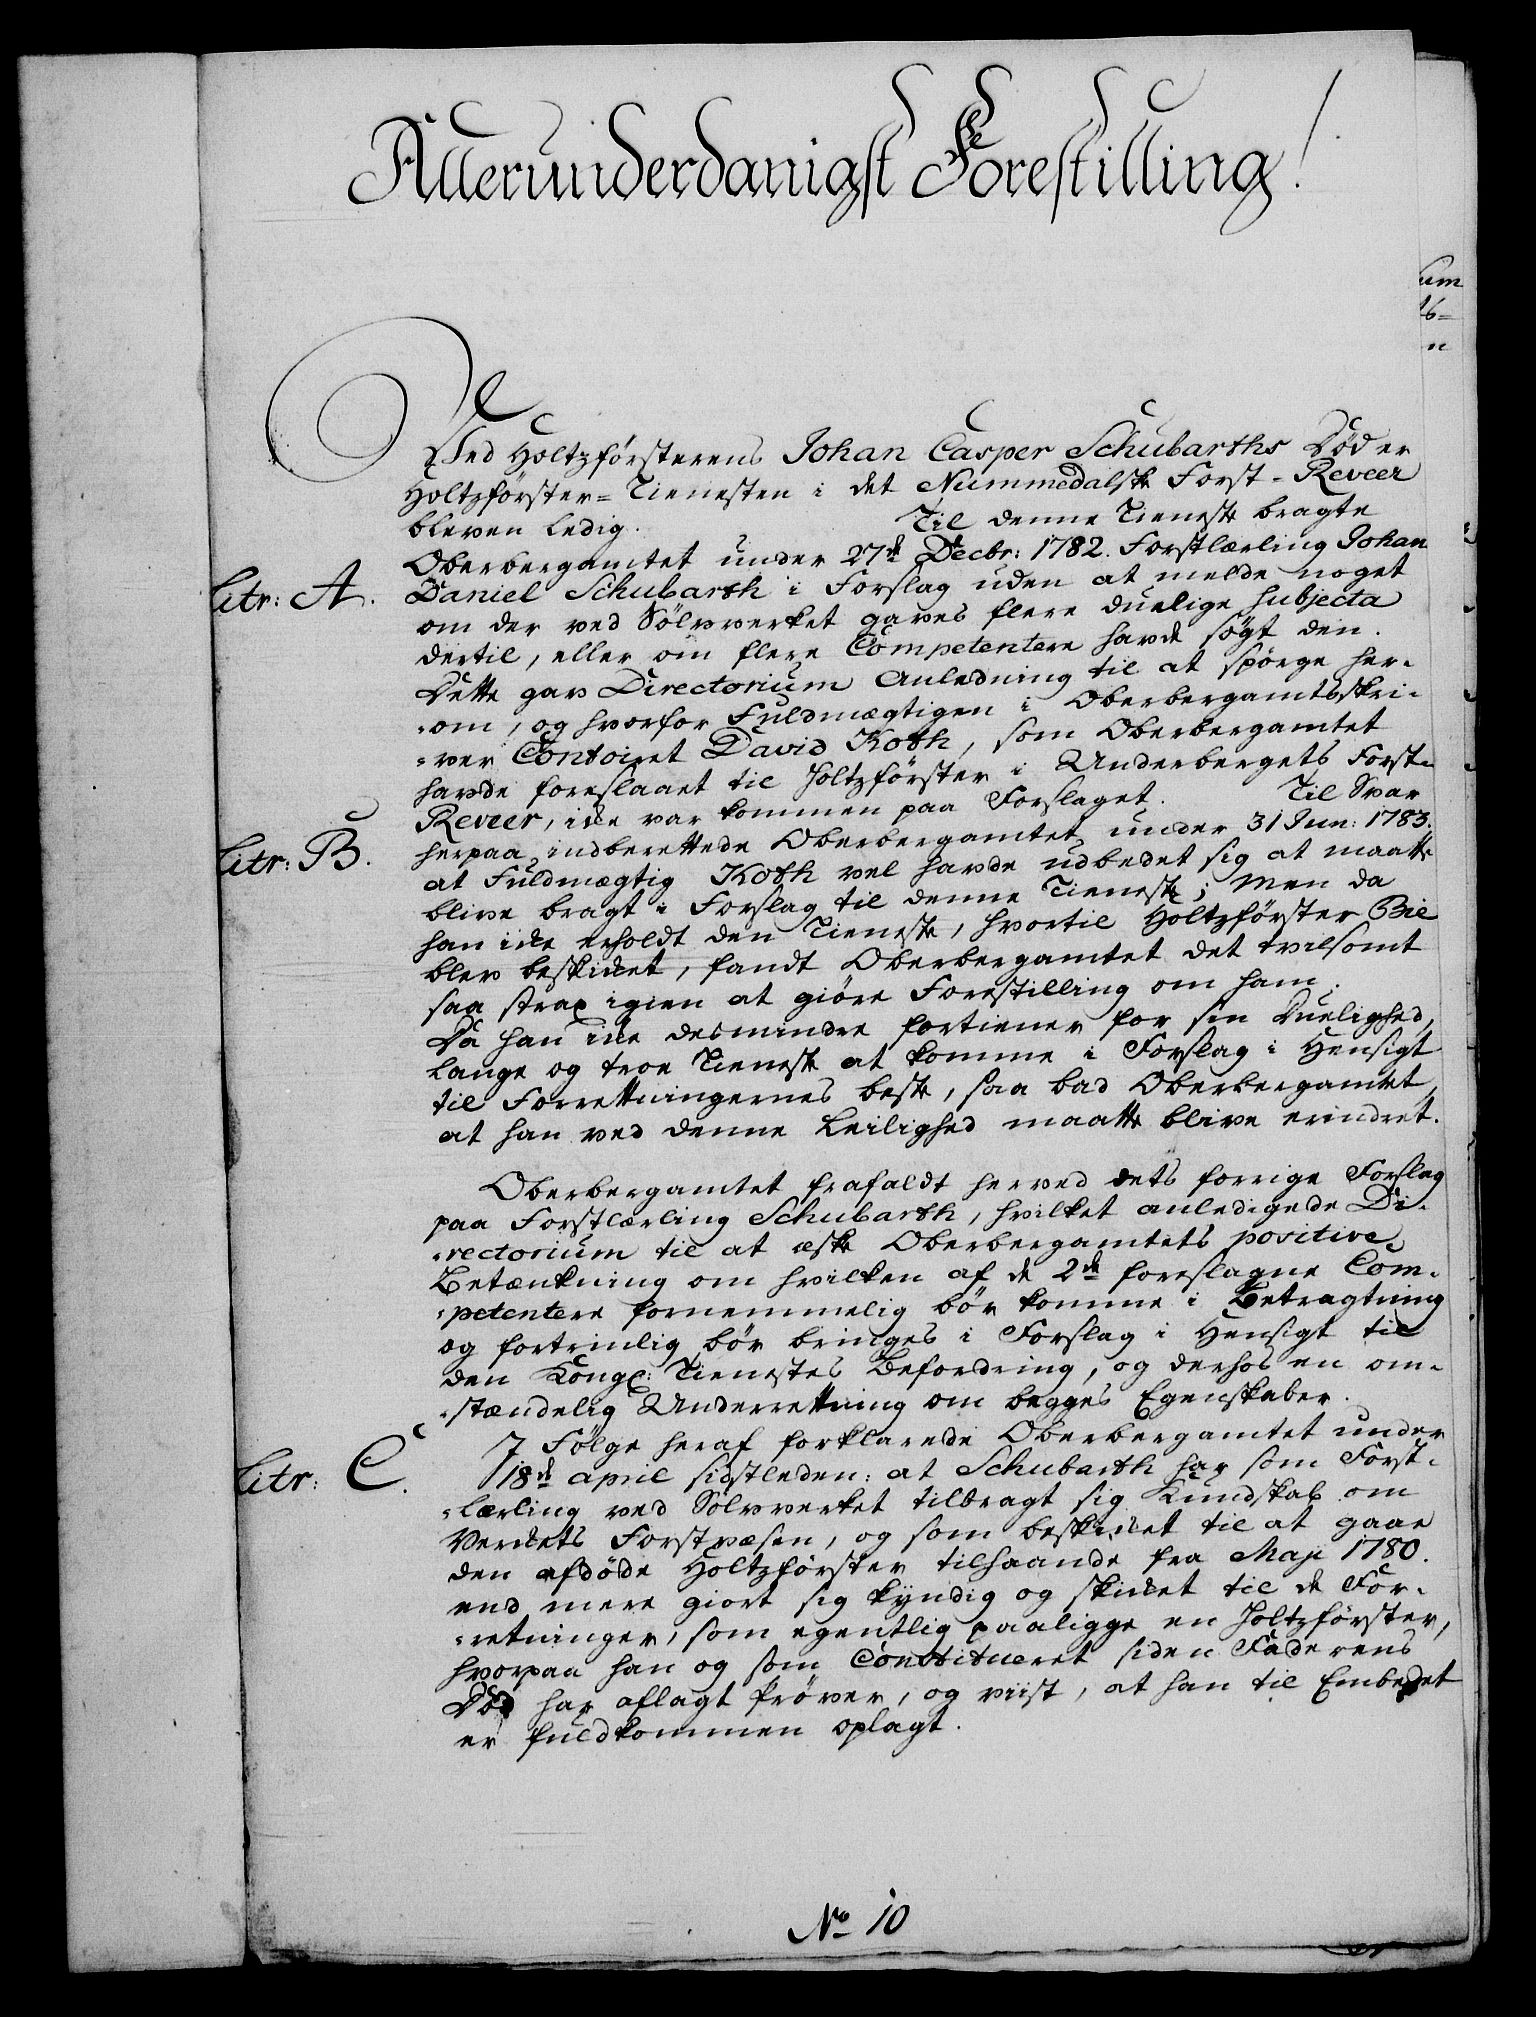 Allerunderdanigst Forestilling!
Ved Holtzförsterens Johan Casper Schubarths Död er
Holtzförster=Tienesten i det Nummedalske Forst-Reveer
bleven ledig. Til denne Tieneste bragte
Oberbergamtet under 27de Decbr: 1782. Forstlærling Johan
Litr: A. Daniel Schubarth i Forslag uden at melde noget
om der ved Sölvverket gaves flere duelige Subjecta
dertil, eller om flere Competentere havde sögt den.
Dette gav Directorium Anledning til at spörge her-
-om, og hvorfor Fuldmægtigen i Oberbergamtsskri-
-ver Contoiret David Koth, som Oberbergamtet
havde foreslaaet til Holtzförster i Underbergets Forst-
Reveer, icke var kommen paa Forslaget. Til Svar
Litr: B. herpaa indberettede Oberbergamtet under 31 Jan: 1783.
at Fuldmægtig Koth vel havde udbedet sig at maatte
blive bragt i Forslag til denne Tieneste; Men da
han icke erholdt den Tieneste, hvortil Holtzförster Bie
blev beskicket, fandt Oberbergamtet det tvilsomt
saa strax igien at giöre Forestilling om ham.
Da han icke desmindre fortiener for sin Duelighed,
lange og troe Tieneste at komme i Forslag i Hensigt
til Forretningernes beste, saa bad Oberbergamtet,
at han ved denne Leilighed maatte blive erindret.
Oberbergamtet frafaldt herved dets forrige Forslag
paa Forstlærling Schubarth, hvilket anledigede Di-
-rectorium til at æske Oberbergamtets positive
Betænkning om hvilken af de 2de foreslagne Com-
-petentere fornemmelig bör komme i Betragtning
og fortrinlig bör bringes i Forslag i Hensigt til
den Kongl: Tienestes Befordring, og derhos en om-
-stændelig Underretning om begges Egenskaber.
I Fölge heraf forklarede Oberbergamtet under
Litr: C. 18de April sidstleden: at Schubarth har som Forst-
-Lærling ved Sölvverket tilbragt sig Kundskab om
Verkets Forstvæsen, og som beskicket til at gaae
den afdöde Holtzförster tilhaande fra Maji 1780.
end mere giort sig kyndig og skicket til de For-
-retninger, som egentlig paaligge en Holtzförster,
hvorpaa han og som Constitueret siden Faderens
Död har aflagt Pröver, og viist, at han til Embedet
er fuldkommen oplagt.
No 10